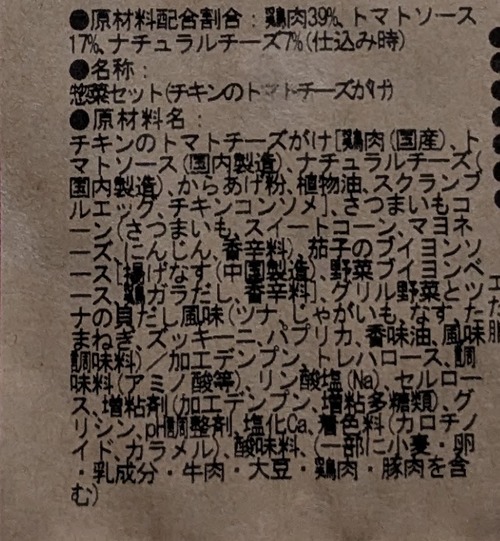 ●原材料配合割合：鶏肉39%、トマトソース
17%、ナチュラルチーズ7%(仕込み時)
●名称：
惣菜セット(チキンのトマトチーズがけ)
●原材料名：
チキンのトマトチーズがけ[鶏肉(国産)、ト
マトソース(国内製造)、ナチュラルチーズ(
国内製造)、からあげ粉、植物油、スクランブ
ルエッグ、チキンコンソメ]、さつまいもコ
ーン(さつまいも、スイートコーン、マヨネ
ーズ)にんじん、香辛料)、茄子のブイヨンソ
ース[揚げなす(中国製造)、野菜ブイヨンベ
ース、鶏ガラだし、香辛料]、グリル野菜とツ
ナの貝だし風味(ツナ、じゃがいも、なす、た
まねぎ、ズッキーニ、パプリカ、香味油、風味
調味料)／加工デンプン、トレハロース、調
味料(アミノ酸等)、リン酸塩(Na)、セルロー
ス、増粘剤(加工デンプン、増粘多糖類)、グ
リシン、pH調整剤、塩化Ca、着色料(カロチノ
イド、カラメル)、酸味料、(一部に小麦・卵
・乳成分・牛肉・大豆・鶏肉・豚肉を含
む)